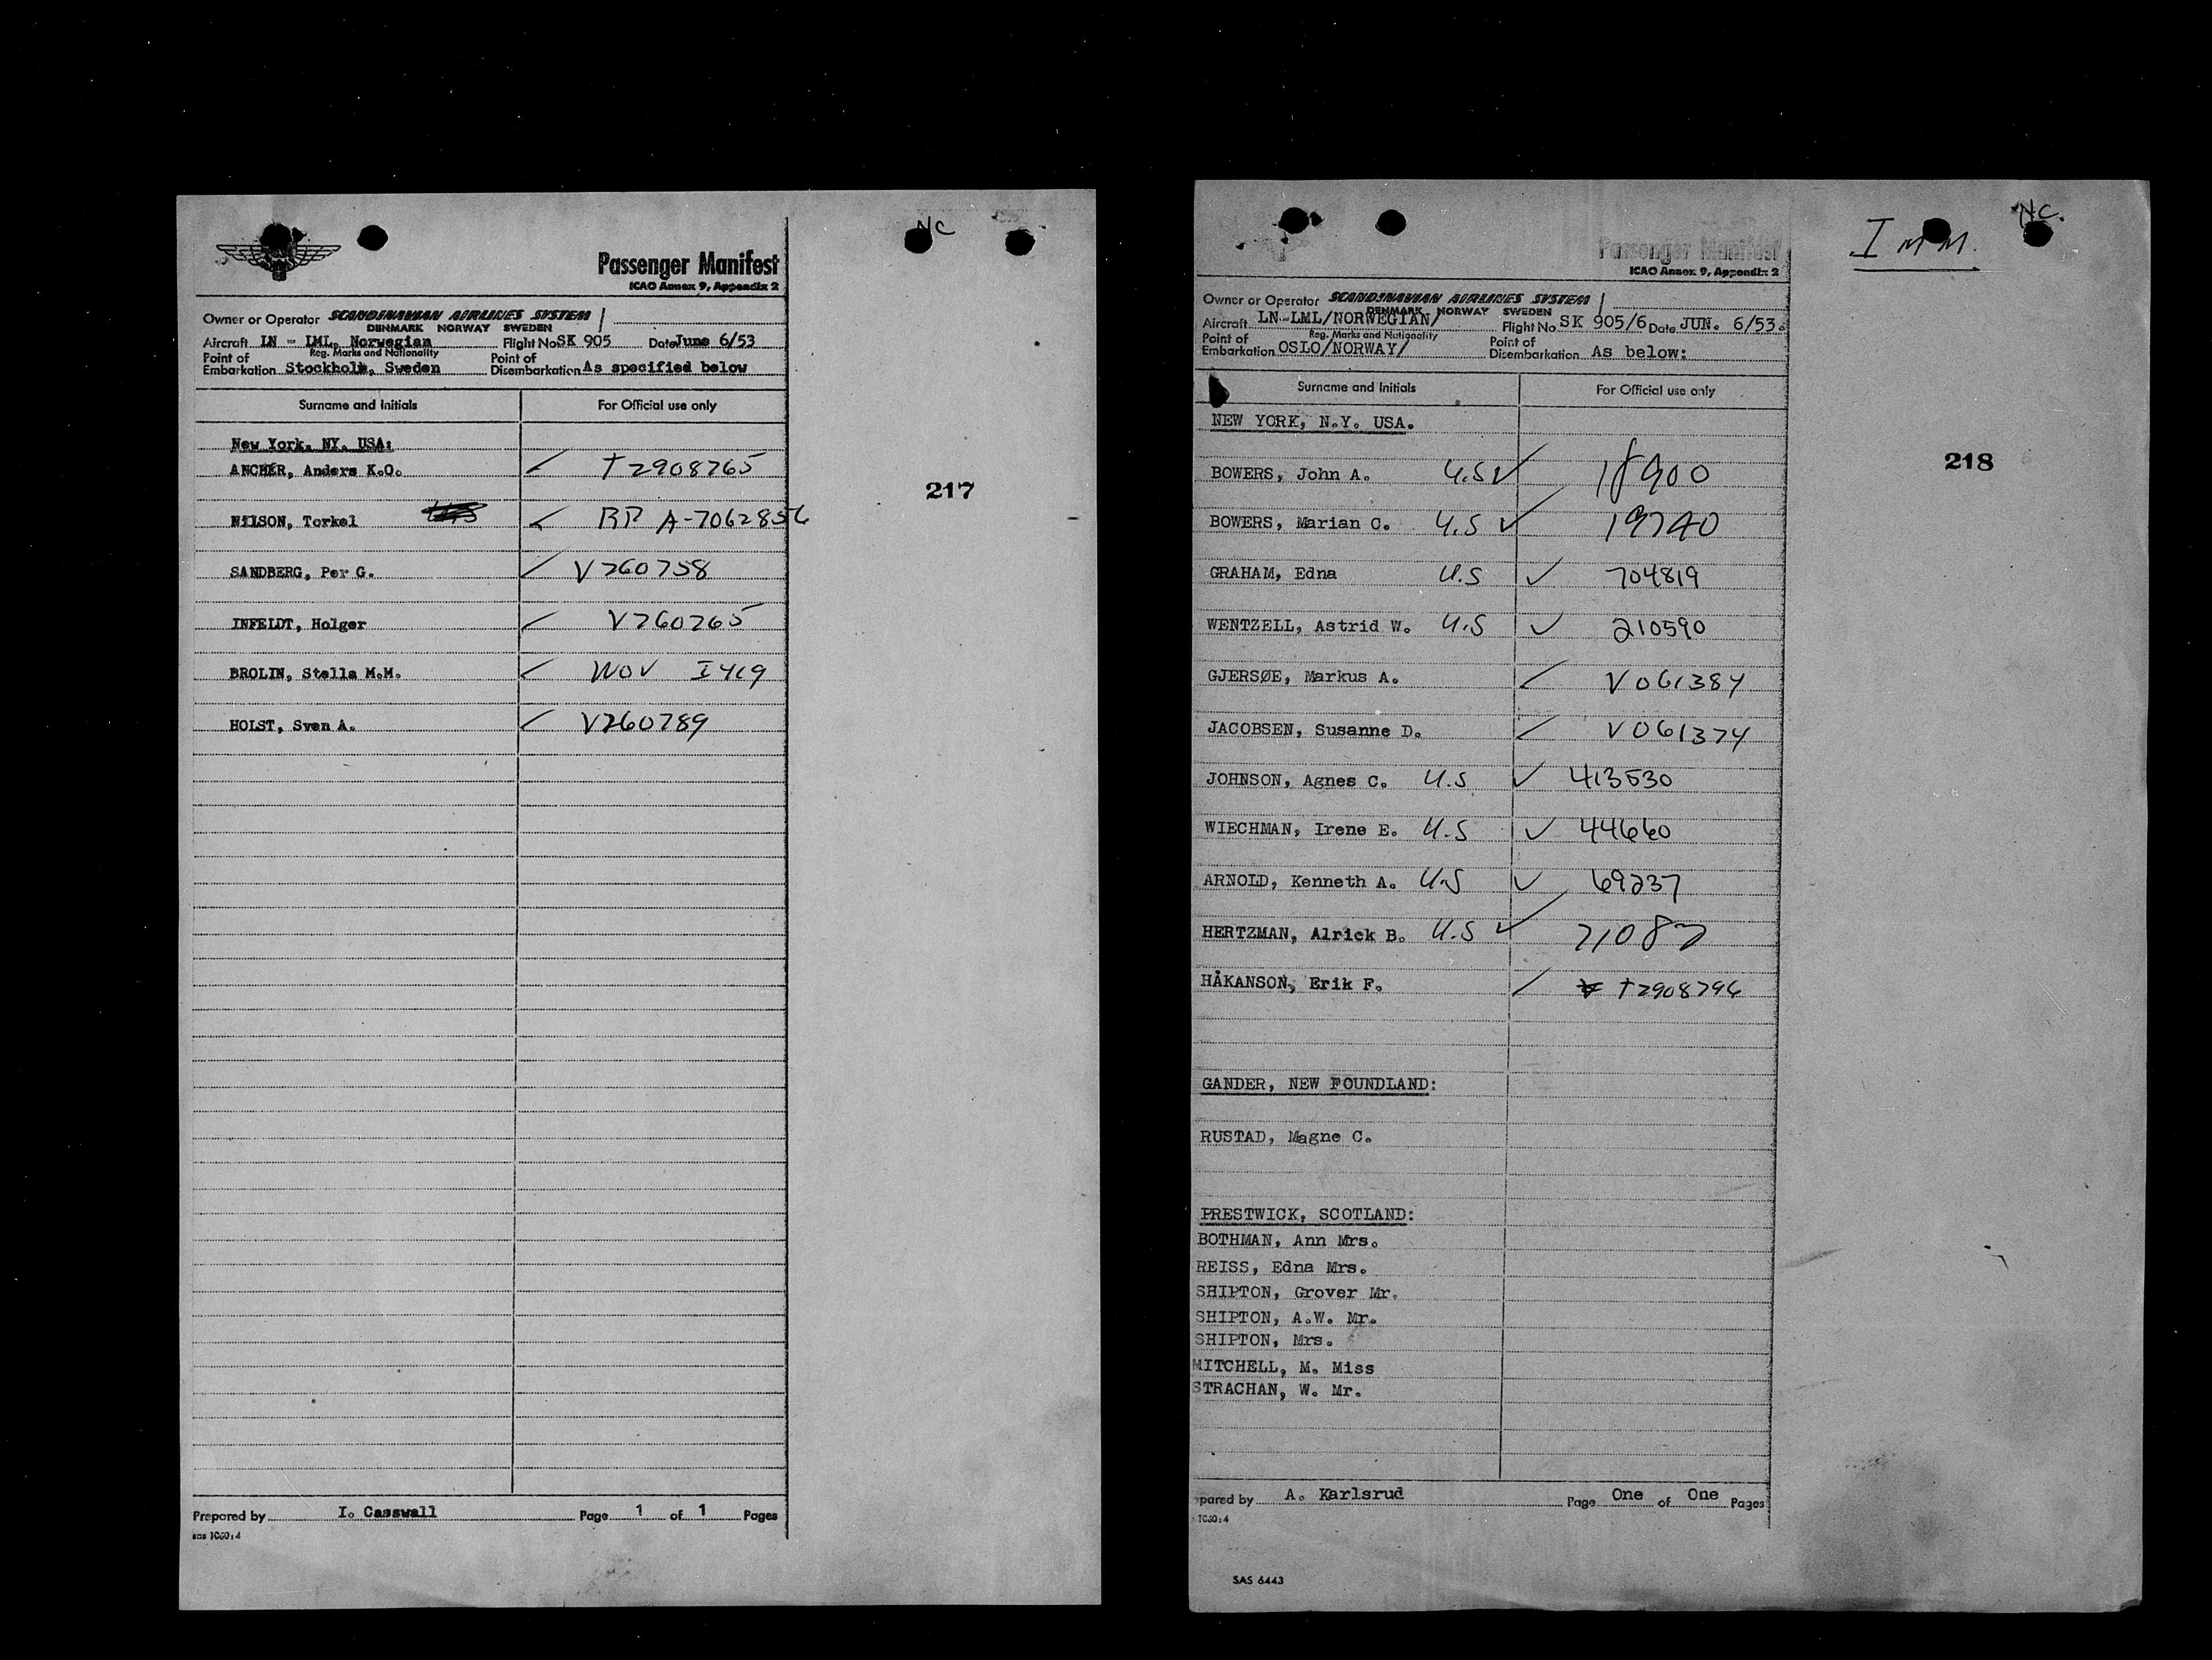 NC
Passenger Manifest
ICAO Annex 9, Appendix 2
Owner or Operator SCANDINAVIAN AIRLINES SYSTEM
DENMARK NORWAY SWEDEN
Aircraft LN - LML, Norwegian Flight No SK 905 Date June 6/53
Reg. Marks and Nationality
Point of Embarkation Stockholm, Sweden Point of Disembarkation As specified below
Surname and Initials For Official use only
New York, NY. USA:
ANCHÉR, Anders K.O. T2908765
217
NILSON, Torkel RP A-7062856
SANDBERG, Per G. V260758
INFELDT, Holger V260765
BROLIN, Stella M.M. NOV I419
HOLST, Sven A. V260789
Prepared by I. Casswall Page 1 of 1 Pages
sas 1060:4
IMM. NC.
Passenger Manifest
ICAO Annex 9, Appendix 2
Owner or Operator SCANDINAVIAN AIRLINES SYSTEM
DENMARK NORWAY SWEDEN
Aircraft LN-LML/NORWEGIAN/ Flight No SK 905/6 Date JUN. 6/53.
Reg. Marks and Nationality
Point of Embarkation OSLO/NORWAY/ Point of Disembarkation As below:
Surname and Initials For Official use only
NEW YORK, N.Y. USA.
218
BOWERS, John A. U.S 18900
BOWERS, Marian C. U.S 19740
GRAHAM, Edna U.S 704819
WENTZELL, Astrid W. U.S 210590
GJERSØE, Markus A. V061384
JACOBSEN, Susanne D. V061374
JOHNSON, Agnes C. U.S 413530
WIECHMAN, Irene E. U.S 44660
ARNOLD, Kenneth A. U.S 69237
HERTZMAN, Alrick B. U.S 71087
HÅKANSON, Erik F. T2908796
GANDER, NEW FOUNDLAND:
RUSTAD, Magne C.
PRESTWICK, SCOTLAND:
BOTHMAN, Ann Mrs.
REISS, Edna Mrs.
SHIPTON, Grover Mr.
SHIPTON, A.W. Mr.
SHIPTON, Mrs.
MITCHELL, M. Miss
STRACHAN, W. Mr.
pared by A. Karlsrud Page One of One Pages
1060:4
SAS 6443